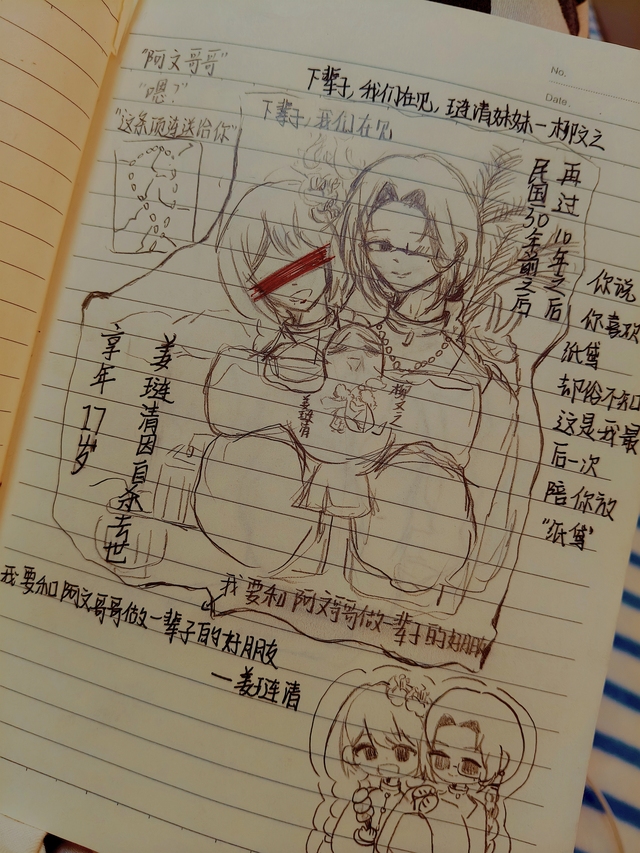 "阿文哥哥"
"嗯?"
"这条项连送给你"
No.
Date.
下辈子，我们在见，琏清妹妹一柳文之
下辈子，我们在见
再过10年之后
民国30年前之后
你说
你喜欢
纸鸢
却俗不知
这是我最
后一次
陪你放
"纸鸢"
姜琏清因自杀去世
享年17岁
柳文之
姜琏清
我要和阿文哥哥做一辈子的好朋友
我要和阿文哥哥做一辈子的好朋友
一姜琏清